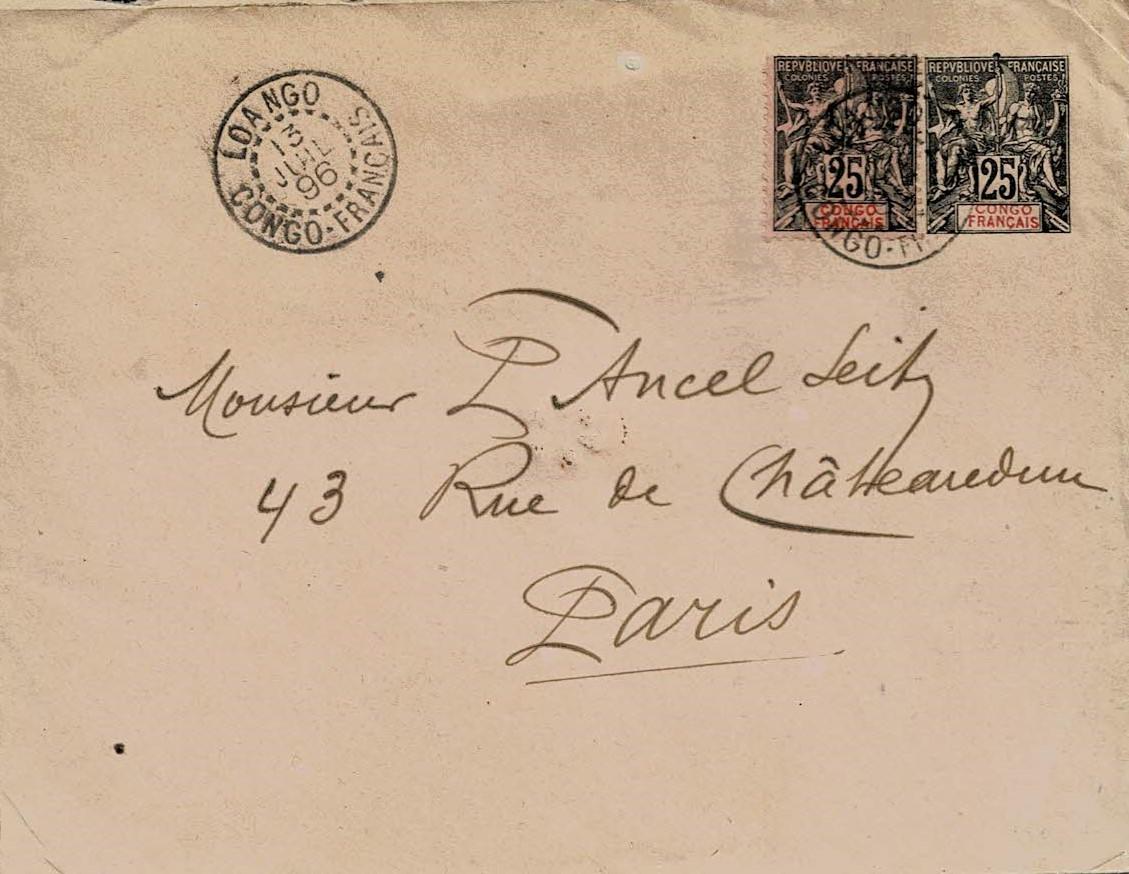 LOANGO
3
JUIL
96
CONGO-FRANÇAIS
REPVBLIQVE FRANÇAISE
COLONIES POSTES
25
CONGO
FRANÇAIS
REPVBLIQVE FRANÇAISE
COLONIES POSTES
25
CONGO
FRANÇAIS
Monsieur P Ancel Seitz
43 Rue de Châteaudun
Paris